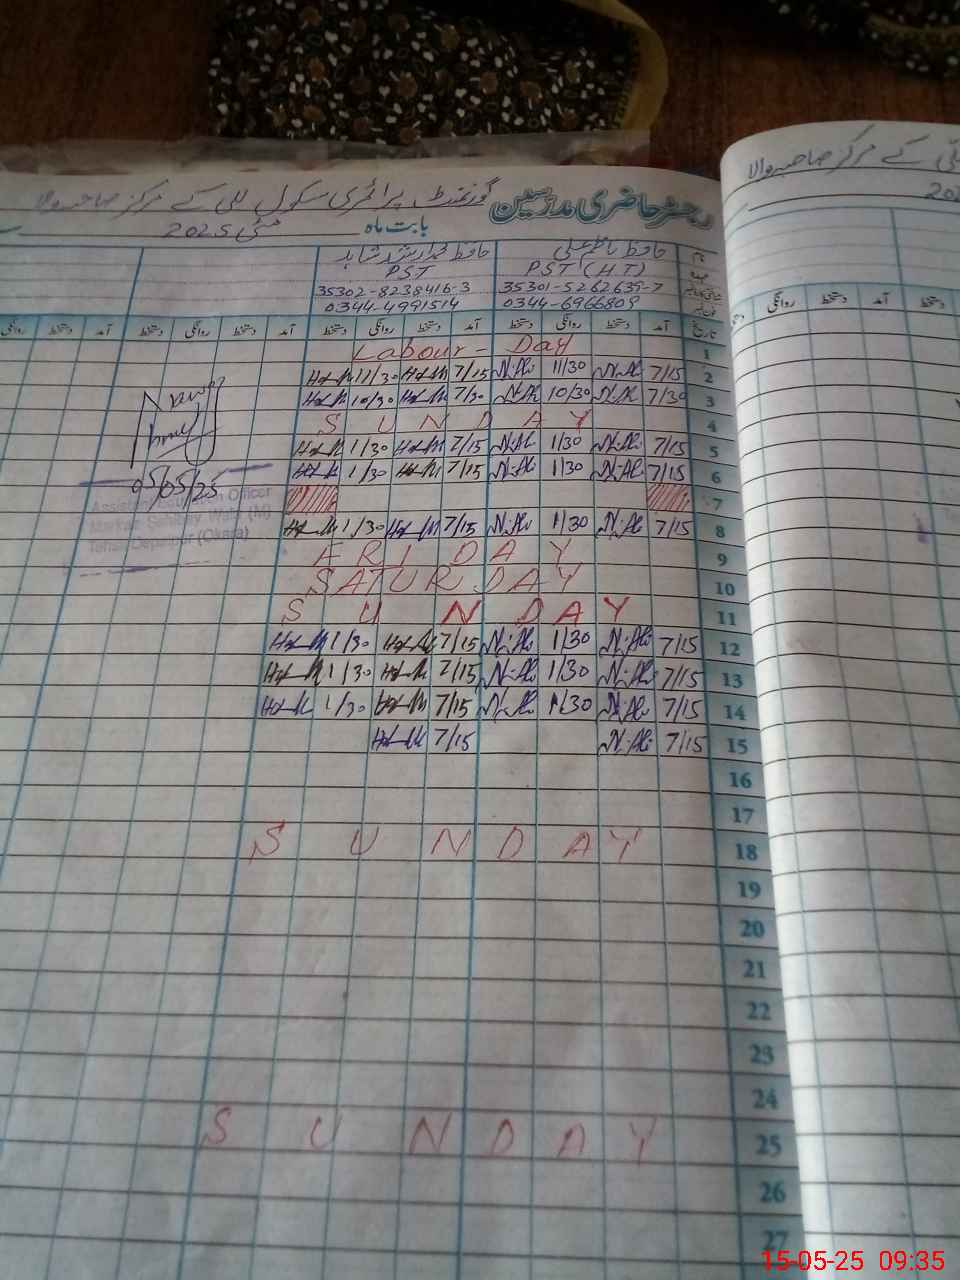 رجسٹر حاضری مدرسین گورنمنٹ پرائمری سکول للی کے مرکز صاحبہ والا
بابت ماہ مئی 2025
نام حافظ ناظم علی حافظ محمد ارشد شاہد
عہدہ PST (H.T) PST
35301-5262639-7 35302-8238416-3
0344-6966809 0344-4991514
تاریخ آمد دستخط روانگی دستخط آمد دستخط روانگی دستخط آمد دستخط روانگی دستخط آمد دستخط روانگی
1 Labour - Day
2 7/15 N.Ali 11/30 N.Ali 7/15 11/30
3 7/30 N.Ali 10/30 N.Ali 7/30 10/30
4 SUNDAY
5 7/15 N.Ali 1/30 N.Ali 7/15 1/30
6 7/15 N.Ali 1/30 N.Ali 7/15 1/30
7
8 7/15 N.Ali 1/30 N.Ali 7/15 1/30
9 FRIDAY
10 SATURDAY
11 SUNDAY
12 7/15 N.Ali 1/30 N.Ali 7/15 1/30
13 7/15 N.Ali 1/30 N.Ali 7/15 1/30
14 7/15 N.Ali 1/30 N.Ali 7/15 1/30
15 7/15 N.Ali 7/15
16
17
18 SUNDAY
19
20
21
22
23
24
25 SUNDAY
26
27
05/05/25
Assistant Education Officer
Markaz
Tehsil Depalpur (Okara)
کے مرکز صاحبہ والا
202
دستخط روانگی دستخط
15-05-25 09:35